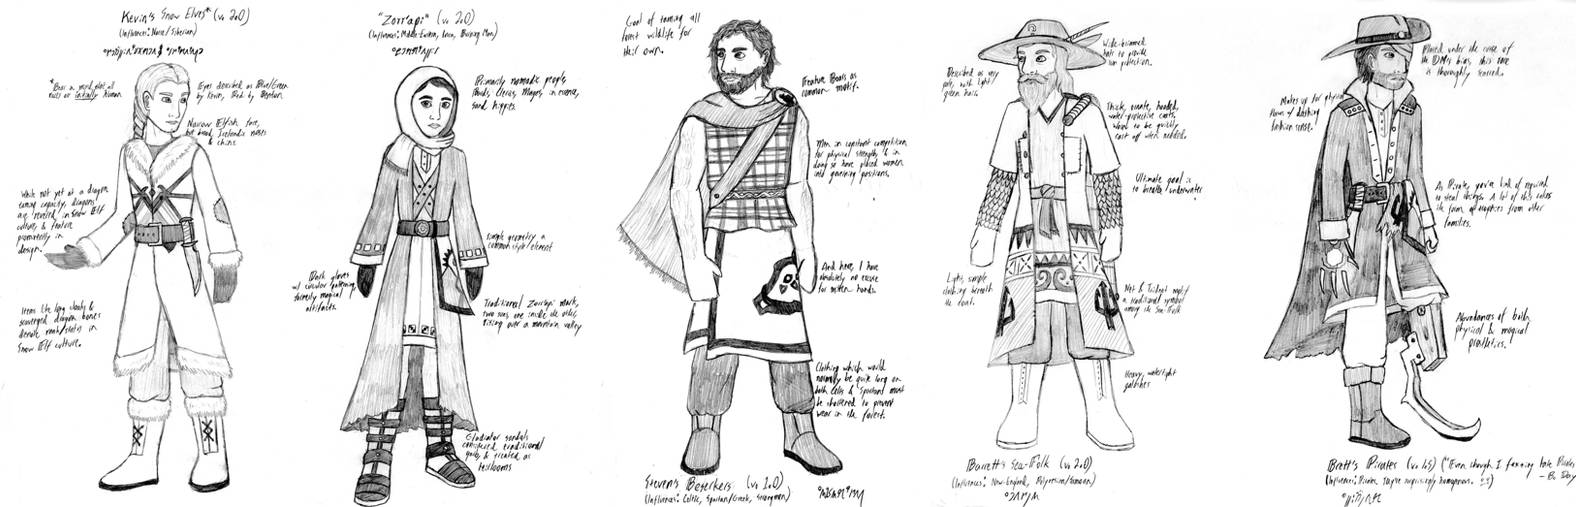 Kevin's Snow Elves* (v. 2.0)
(Influences: Norse/Siberian)
*Bear in mind, that all
races are initially human.
Eyes described as Blue/Green
by Kevin, Red by
Narrow Elfish face,
but broad, Icelandic noses
& chins.
While not yet at a dragon
taming capacity, dragons
are revered in Snow Elf
culture, & feature
prominently in
design.
Items like long cloaks &
scavenged dragon bones
denote rank/status in
Snow Elf culture.
"Zorr'api" (v. 2.0)
(Influences: Middle-Eastern, Burning Man)
Primarily nomadic people,
sand hippies.
Simple geometry a
common style/element
Dark gloves
w/ circular patterning,
magical
artifacts.
Traditional Zorr'api mark,
two suns one inside the other,
rising over a mountain valley
Gladiator sandals
considered traditional
garb, & treated as
heirlooms
Goal of taming all
forest wildlife for
their own.
Feature Bears as
common motif.
Men in constant competition
for physical strength, & in
doing so have placed women
into governing positions.
And here, I have
absolutely no excuse
for mitten hands.
Clothing which would
normally be quite long on
both Celts & Spartans must
be shortened to prevent
wear in the forest.
Steven's Beserkers (v. 2.0)
(Influences: Celtic, Spartan/Greek, Strongmen)
Wide-brimmed
hats to provide
sun protection.
Described as very
pale, with light/
green hair.
Thick, ornate, hooded,
water-protective coats,
meant to be quickly
cast off when needed.
Ultimate goal is
to breathe underwater
Light, simple
clothing beneath
the coat.
Net & Trident motif
a traditional symbol
among the Sea-Folk
Heavy, watertight
galoshes
Barrett's Sea-Folk (v. 2.0)
(Influences: New-England, Polynesian/Samoan)
Placed under the curse of
the DM's bias, this race
is thoroughly
Makes up for physical
flaws w/ dashing
fashion sense.
As Pirates, you're kind of required
to steal things. A lot of this takes
the form of trophies from other
families.
Abundances of both
physical & magical
prosthetics.
Brett's Pirates (v. 1.5) ("Even though I fucking hate Pirates"
(Influences: Pirates,